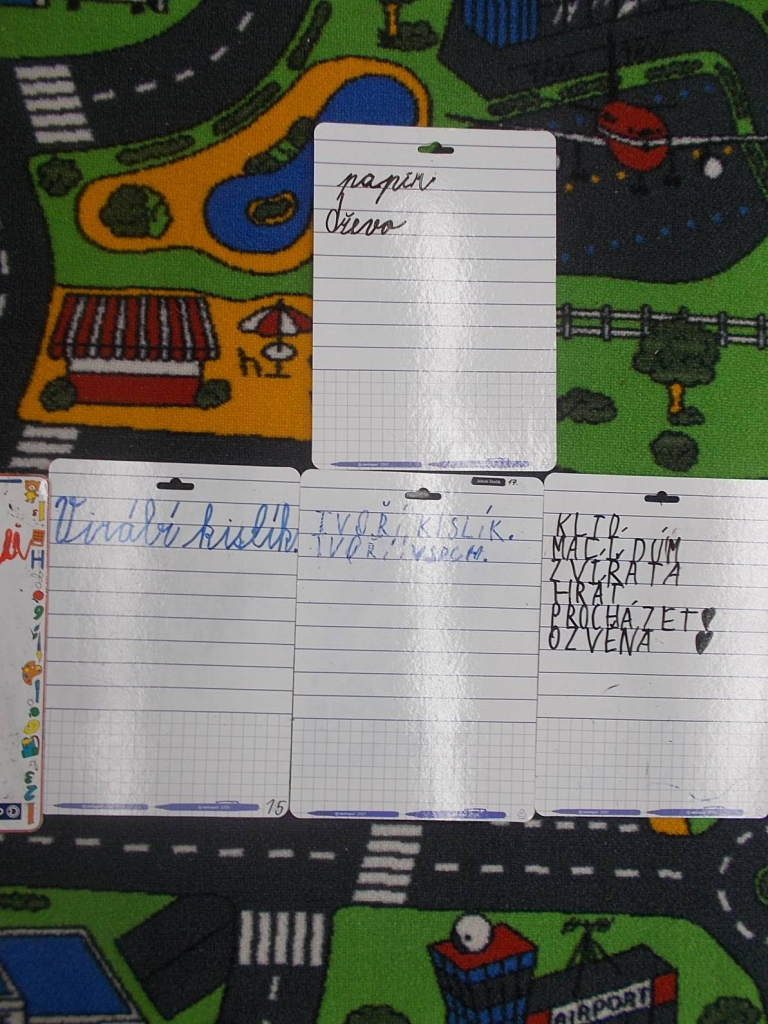 papír
dřevo
17.
Virábí kislík.
TVOŘÍ KISLÍK.
TVOŘÍ
KLID,
DŮM
ZVÍŘATA
HRÁT,
PROCHÁZET!
OZVĚNA
15
AIRPORT